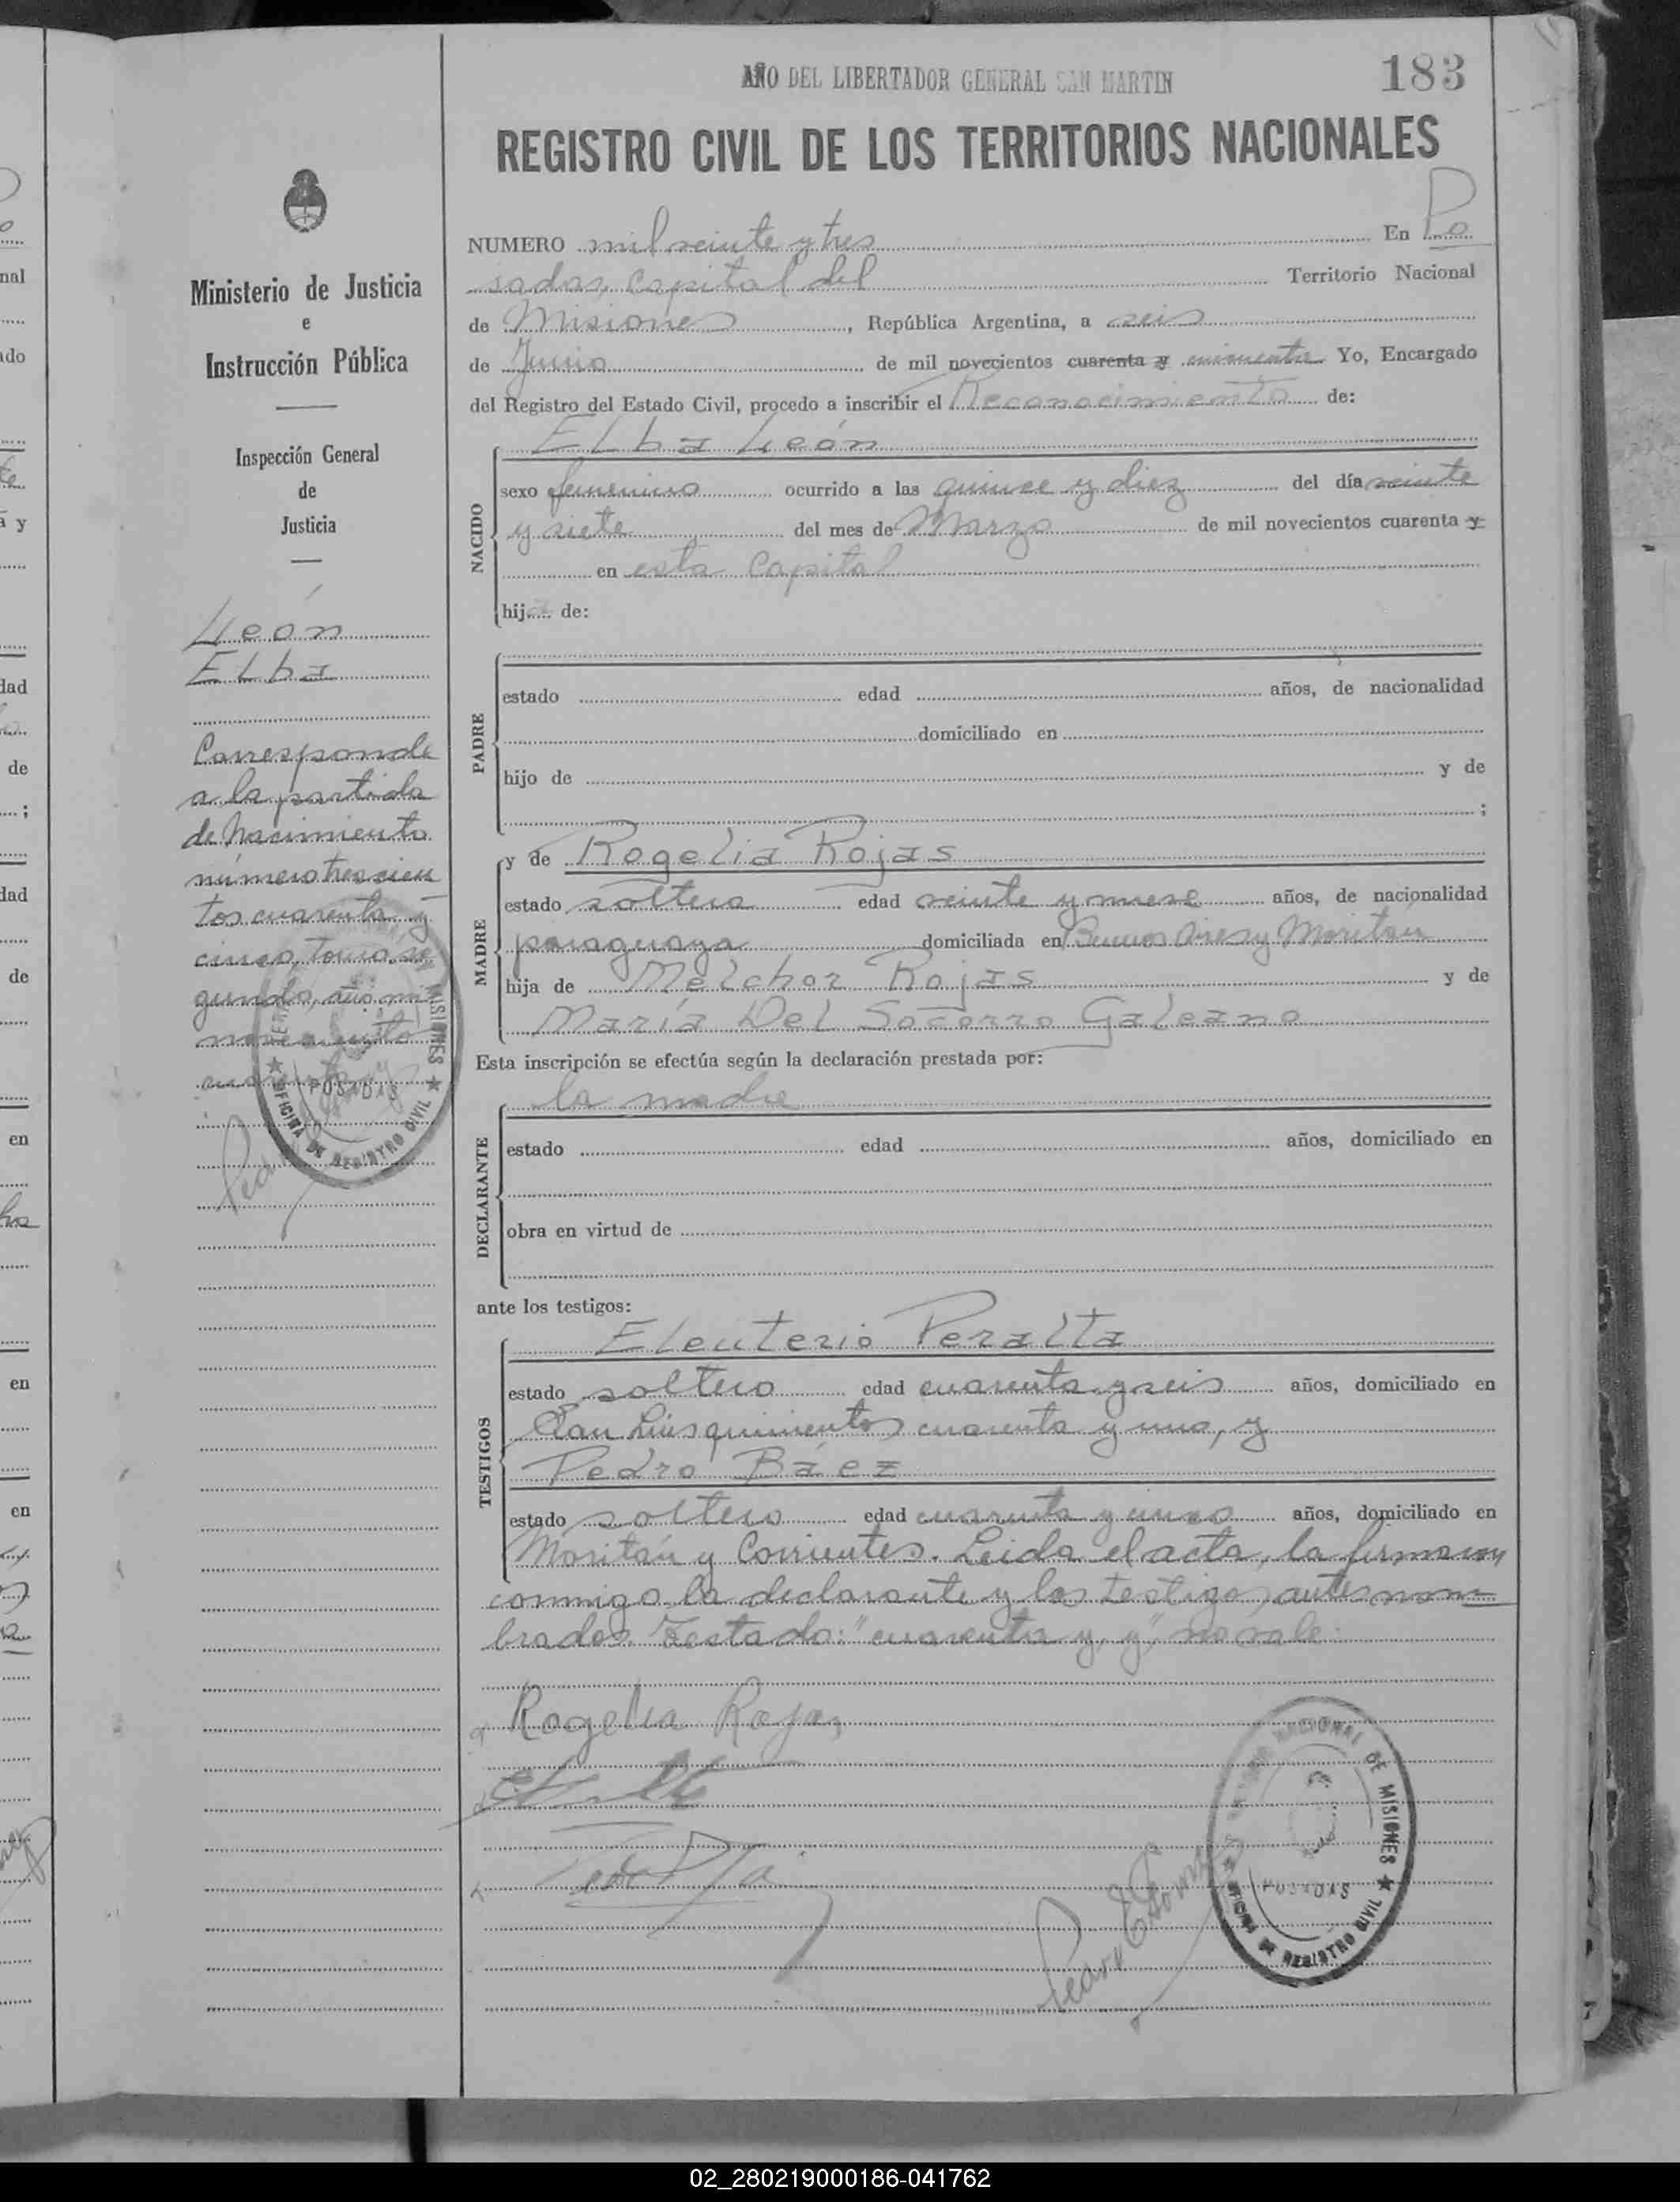 AÑO DEL LIBERTADOR GENERAL SAN MARTIN
183
REGISTRO CIVIL DE LOS TERRITORIOS NACIONALES
Ministerio de Justicia
e
Instrucción Pública
Inspección General
de
Justicia
León
Elba
Corresponde
a la partida
de Nacimiento
número trescien
tos cuarenta y
cinco, tomo se
gundo, año mil
novecientos
cuarenta
NUMERO mil veinte y tres En Po
sadas, Capital del Territorio Nacional
de Misiones, República Argentina, a seis
de Junio de mil novecientos cuarenta y cincuenta Yo, Encargado
del Registro del Estado Civil, procedo a inscribir el Reconocimiento de:
Elba León
NACIDO
sexo femenino ocurrido a las quince y diez del día veinte
y siete del mes de Marzo de mil novecientos cuarenta y
en esta Capital
hija de:
PADRE
estado edad años, de nacionalidad
domiciliado en
hijo de y de
;
MADRE
y de Rogelia Rojas
estado soltera edad veinte y nueve años, de nacionalidad
paraguaya domiciliada en Buenos Aires y Moritán
hija de Melchor Rojas y de
María Del Socorro Galeano
Esta inscripción se efectúa según la declaración prestada por:
DECLARANTE
la madre
estado edad años, domiciliado en
obra en virtud de
ante los testigos:
TESTIGOS
Eleuterio Peralta
estado soltero edad cuarenta y seis años, domiciliado en
San Luis quinientos cuarenta y uno, y
Pedro Báez
estado soltero edad cuarenta y cinco años, domiciliado en
Moritán y Corrientes. Leida el acta, la firmaron
conmigo la declarante y los testigos antes nom
brados. Testado: "cuarenta y, y", no vale.
Rogelia Rojas
TERRITORIO NACIONAL DE MISIONES
POSADAS
OFICINA DE REGISTRO CIVIL
02_280219000186-041762